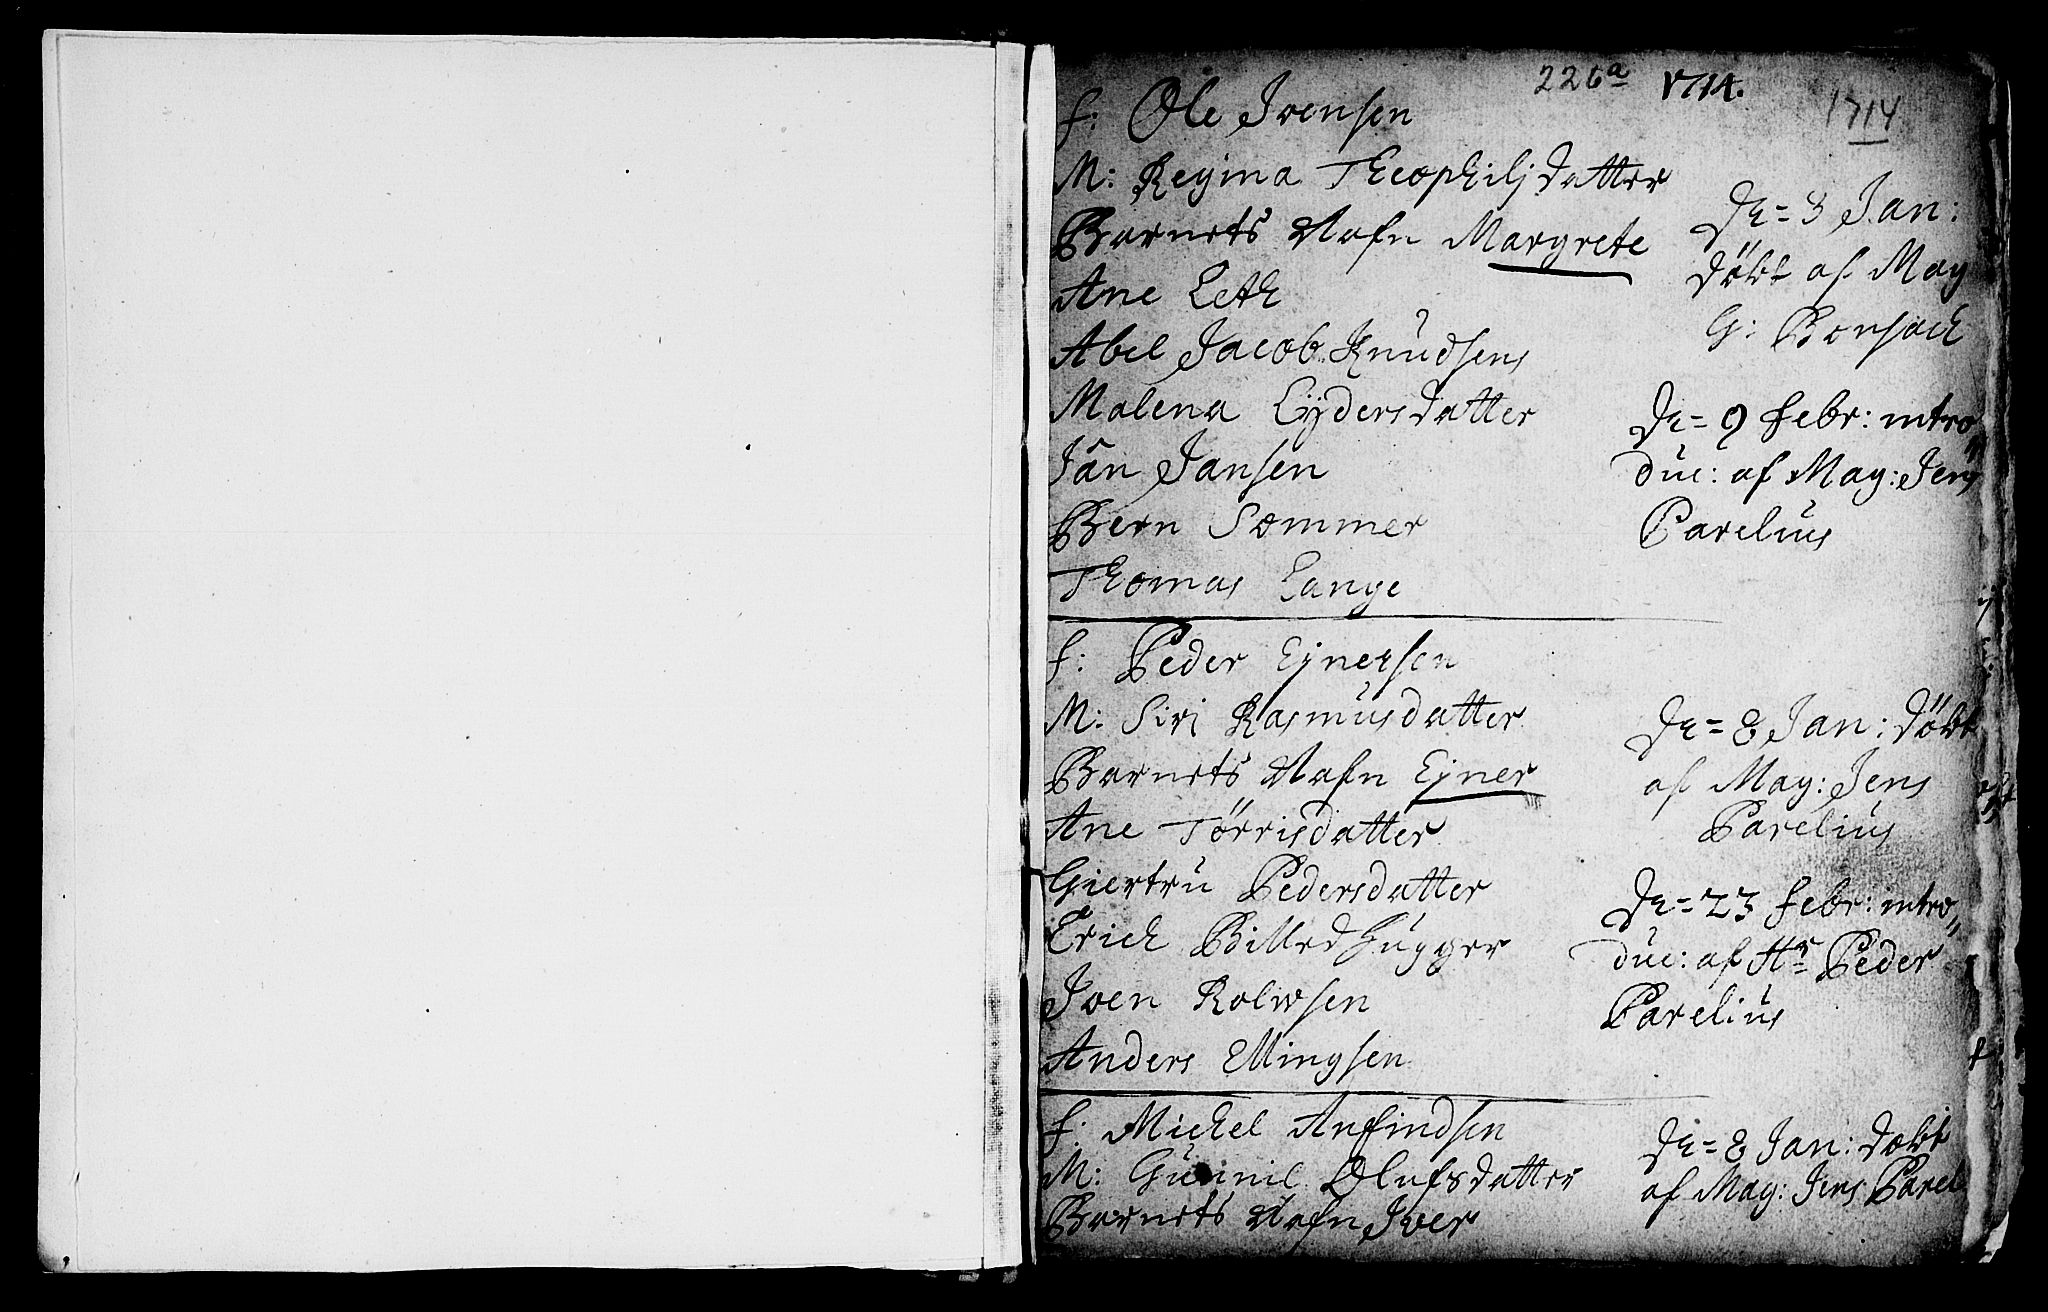 226a 1714. 1714
f: Ole Joensen
M: Regina Theophilj datter
Barnets Nafn Margrete
Ane Leth
Abel Jacob Knudsens
Malena Lÿdersdatter
Jan Jansen
Bern Sommer
Thomas Lange
D= 3 Jan:
döbt af Mag
G: Bonsach
D= 9 febr: intro„
duc: af Mag: Jens
Parelius
f: Peder Ejnersen
M: Siri Rasmusdatter
Barnets Nafn Ejner
Ane Törrisdatter
Giertru Pedersdatter
Erich Billedhugger
Joen Rolwsen
Anders Ellingsen
D= 8 Jan: döbt
af Mag: Jens
Parelius
D= 23 febr: intro„
duc: af Hr Peder
Parelius
f: Michel Anfindsen
M: Gunnil Olufsdatter
Barnets Nafn Iver
D= 8 Jan: döbt
af Mag: Jens Parel